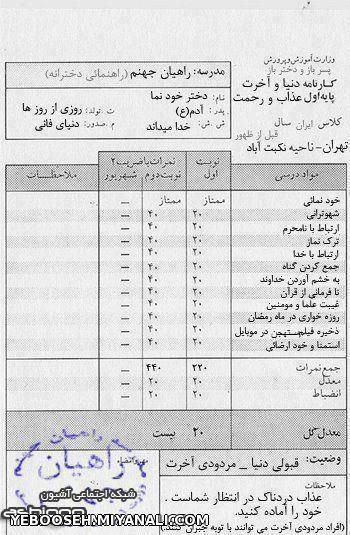 وزارت آموزش و پرورش
پسر باز و دختر باز
کارنامه دنیا و آخرت
پایه اول عذاب و رحمت
کلاس ایران سال
قبل از ظهور
تهران - ناحیه نکبت آباد
مدرسه: راهیان جهنم (راهنمائی دخترانه)
نام: دختر خود نما
پدر: آدم(ع) ت.تولد: روزی از روز ها
ش.ش: خدا میداند م.صدور: دنیای فانی
مواد درسی نوبت اول نمرات باضریب۲ نوبت دوم شهریور ملاحظات
خود نمائی ممتاز ممتاز —
شهوترانی ۲۰ ۴۰ —
ارتباط با نامحرم ۲۰ ۴۰ —
ترک نماز ۲۰ ۴۰ —
ارتباط با خدا ۲۰ ۴۰ —
جمع کردن گناه ۲۰ ۴۰ —
به خشم آوردن خداوند ۲۰ ۴۰ —
نا فرمانی از قرآن ۲۰ ۴۰ —
غیبت علما و مومنین ۲۰ ۴۰ —
روزه خواری در ماه رمضان ۲۰ ۴۰ —
ذخیره فیلم مستهجن در موبایل ۲۰ ۴۰ —
استمنا و خود ارضائی ۲۰ ۴۰ —
جمع نمرات ۲۲۰ ۴۴۰ —
معدل ۲۰ ۲۰ —
انضباط ۲۰ ۲۰ —
معدل کل ۲۰ بیست
وضعیت: قبولی دنیا _ مردودی آخرت
ملاحظات
عذاب دردناک در انتظار شماست .
خود را آماده کنید.
(افراد مردودی آخرت می توانند با توبه جبران کنند)
مهر و امضاء
راهیان
راهیان
شبکه اجتماعی آشیون
YEBOOSEH.MIYANALI.COM